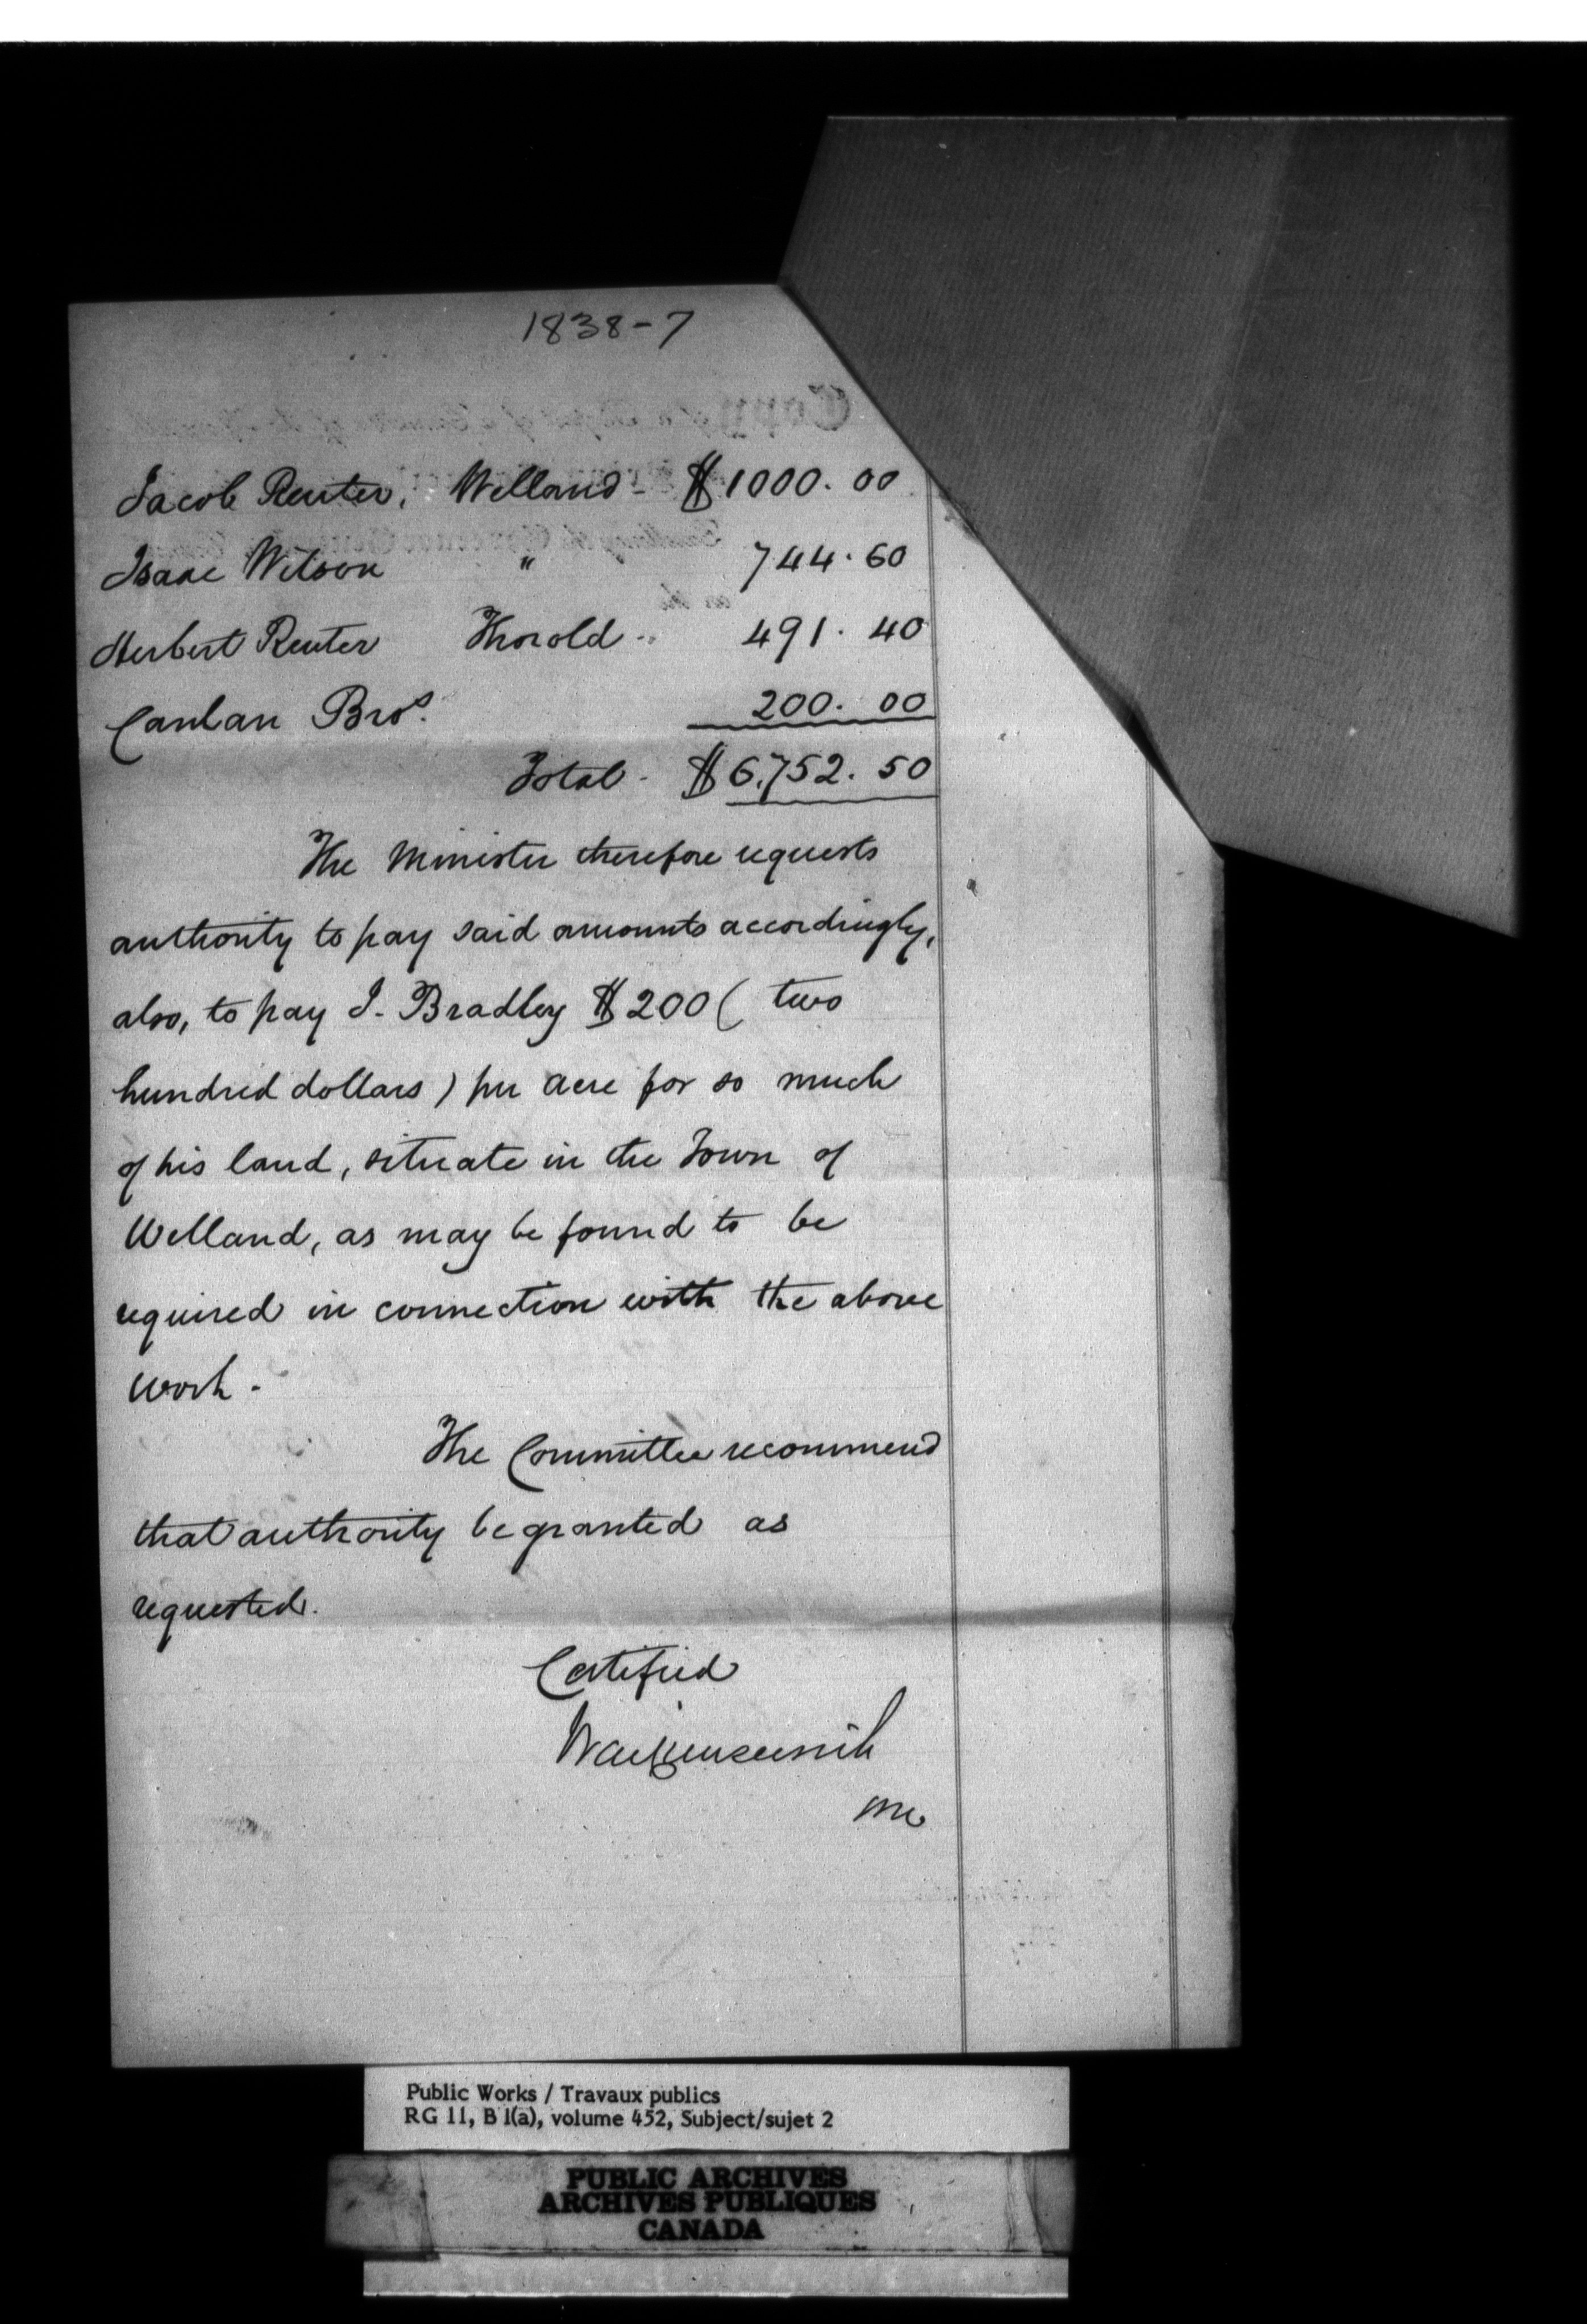 1838-7
Jacob Reuter, Welland - $1000.00
Isaac Wilson " 744.60
Herbert Reuter Thorold - 491.40
Canlan Bros. 200.00
Total - $6,752.50
The Minister therefore requests
authority to pay said amounts accordingly,
also, to pay J. Bradley $200 (two
hundred dollars) per acre for so much
of his land, situate in the Town of
Welland, as may be found to be
required in connection with the above
work.
The Committee recommend
that authority be granted as
requested.
Certified
Public Works / Travaux publics
RG 11, B 1(a), volume 452, Subject/sujet 2
PUBLIC ARCHIVES
ARCHIVES PUBLIQUES
CANADA